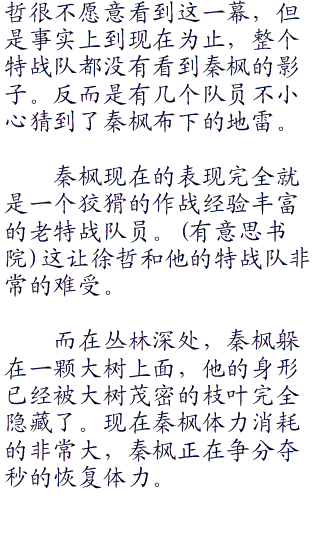 哲很不愿意看到这一幕，但
是事实上到现在为止，整个
特战队都没有看到秦枫的影
子。反而是有几个队员不小
心猜到了秦枫布下的地雷。
秦枫现在的表现完全就
是一个狡猾的作战经验丰富
的老特战队员。(有意思书
院)这让徐哲和他的特战队非
常的难受。
而在丛林深处，秦枫躲
在一颗大树上面，他的身形
已经被大树茂密的枝叶完全
隐藏了。现在秦枫体力消耗
的非常大，秦枫正在争分夺
秒的恢复体力。